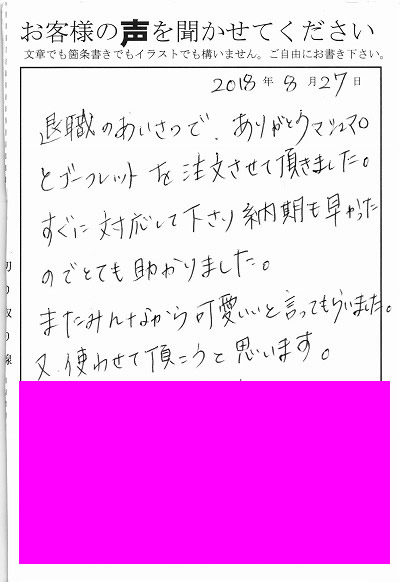 お客様の声を聞かせてください
文章でも箇条書きでもイラストでも構いません。ご自由にお書き下さい。
2018年8月27日
退職のあいさつで、ありがとうマシュマロ
とゴーフレットを注文させて頂きました。
すぐに対応して下さり納期も早かった
のでとても助かりました。
またみんなから可愛いいと言ってもらいました。
又、使わせて頂こうと思います。
切り取り線